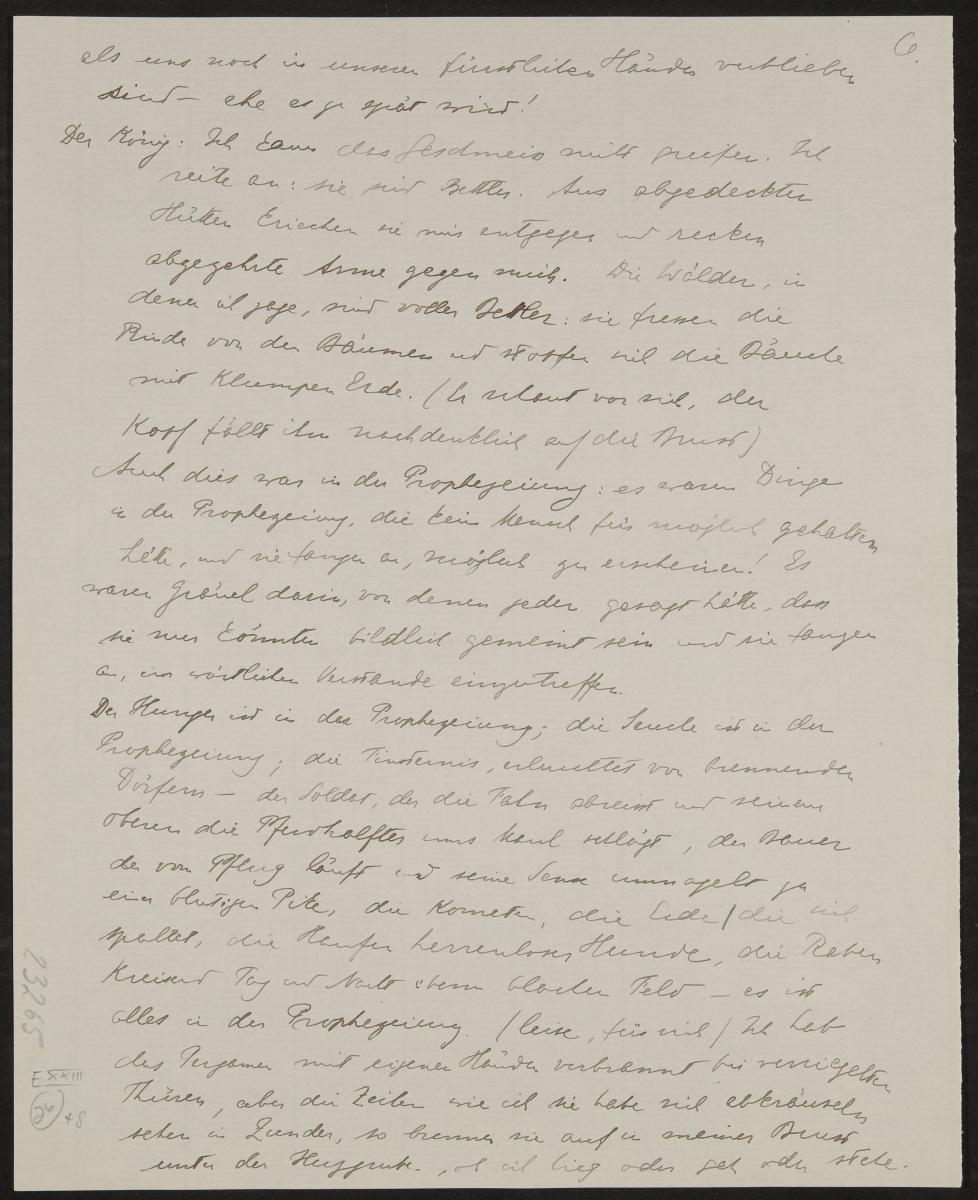 6.
als uns noch in unseren fürstlichen Händen verblieben
sind – ehe es zu spät wird!
Der König: Ich kann das Geschmeis nicht greifen. Ich
reite an: sie sind Bettler. Aus abgedeckten
Hütten kriechen sie mir entgegen und recken
abgezehrte Arme gegen mich. Die Wälder, in
denen ich jage, sind voller Bettler: sie fressen die
Rinde von den Bäumen und stopfen sich die Bäuche
mit Klumpen Erde. (Er schaut vor sich, der
Kopf fällt ihm nachdenklich auf die Brust)
Auch dies war in der Prophezeiung: es waren Dinge
in der Prophezeiung, die kein Mensch für möglich gehalten
hätte, und sie fangen an, möglich zu erscheinen! Es
waren Gräuel darin, von denen jeder gesagt hätte, dass
sie nur könnten bildlich gemeint sein und sie fangen
an, im wörtlichen Verstande einzutreffen.
Der Hunger ist in der Prophezeiung; die Seuche ist in der
Prophezeiung; die Finsternis, erleuchtet von brennenden
Dörfern – der Soldat, der die Fahn abreisst und seinem
Oberen die Pferdhalfter ums Maul schlägt, der Bauer
der vom Pflug läuft und seine Sense umnagelt zu
einer blutigen Pike, die Kometen, die Erde / die sich
spaltet, die Haufen herrenloser Hunde, die Raben
kreisend Tag und Nacht überm blachen Feld – es ist
alles in der Prophezeiung. (leise, für sich) Ich hab
das Pergamen mit eigenen Händen verbrannt bei verriegelten
Thüren, aber die Zeilen wie ich sie habe sich abkräuseln
sehen in Zunder, so brennen sie auf in meiner Brust
unter der Herzgrube, ob ich lieg oder geh oder stehe.
23265
E XXIII
48